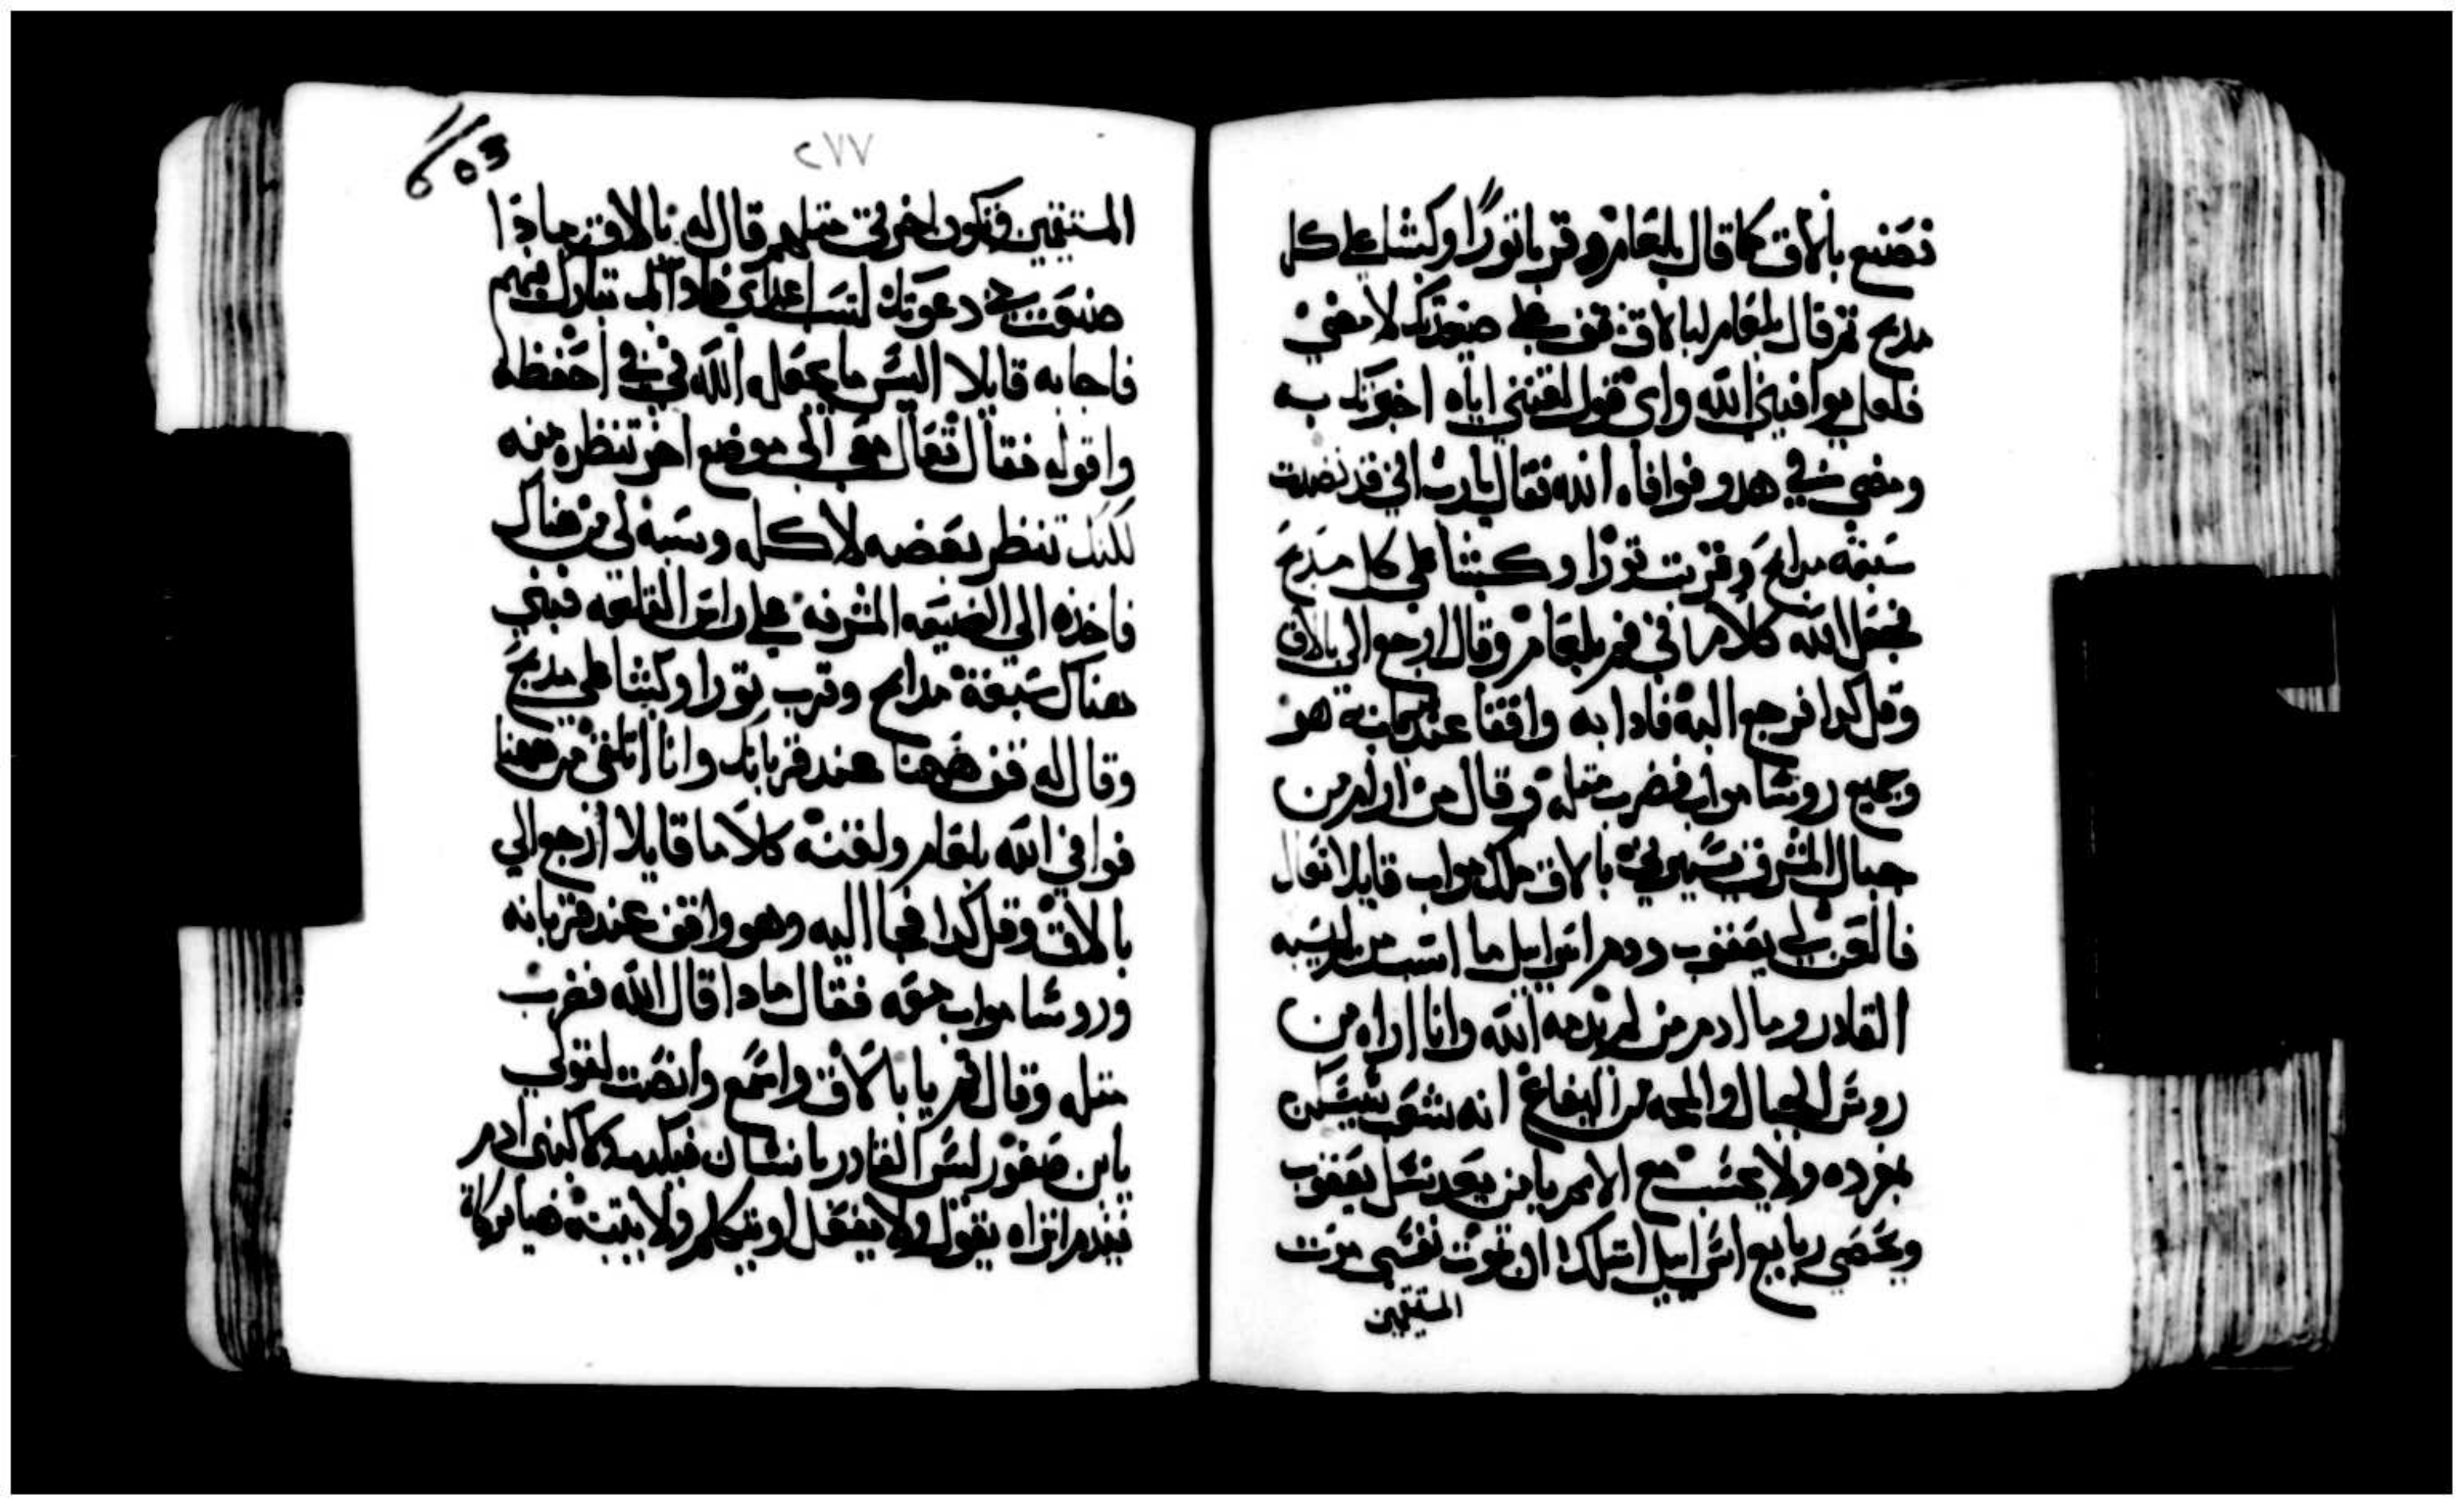 فصنع بالاق كما قال بلعام وقربا ثورًا وكبشا على كل
مدبح ثم قال بلعام لبالاق قف على صعيدتك لامضي
فلعل يوافيني الله واي قول لقنني اياه اخبرتك به
ومضى في هدو فوافاه الله فقال يارب اني قد نصبت
سبعة مدابح وقربت ثورا وكبشا على كل مدبح
فجعل الله كلاما في فم بلعام وقال ارجع الى بالاق
وقل كدا فرجع اليه فادا به واقفا عند قربانه هو
وجميع روسا مواب فضرب مثله وقال من ارام من
جبال المشرق يسيرني بالاق ملك مواب قايلا تعال
فالعن لي يعقوب ودم اسراييل ما اسب من لم يسبه
القادر وما ادم من لم يدمه الله وانا اراه من
روس الجبال والمحه من اليفاع انه شعب يسكن
بمفرده ولا يحسب مع الامم يامن يعد نسل يعقوب
ويحصي ربابيع اسراييل اسلك ان تموت نفسي موت
المستقيمين
٢٧٧
المستقيمين وتكون اخرتي مثلهم قال له بالاق مادا
صنعت بي دعوتك لتسب اعداي فادا بك تبارك فيهم
فاجابه قايلا اليس ما يجعل الله في في احفظه
واقوله فقال تعال معي الى موضع اخر تنظره منه
لكنك تنظر بعضه لا كله وسبه لي من هناك
فاخذه الى الضيعه المشرفه على راس القلعه فبنى
هناك سبعة مدابح وقرب ثورا وكبشا على مدبح
وقال له قف ههنا عند قربانك وانا اتلقى من ههنا
فوافى الله بلعام ولقنه كلاما قايلا ارجع الى
بالاق وقل كدا فجا اليه وهو واقف عند قربانه
وروسا مواب معه فقال مادا قال الله فضرب
مثله وقال قم يا بالاق واسمع وانصت لقولي
يابن صفور ليس القادر بانسان فيكدب ولا كبني ادم
فيندم اتراه يقول ولا يفعل او يتكلم ولا يثبته هيا بركاة